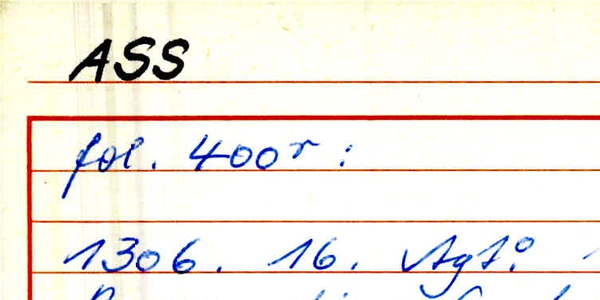 ASS
fol. 400r :
1306. 16. Agto